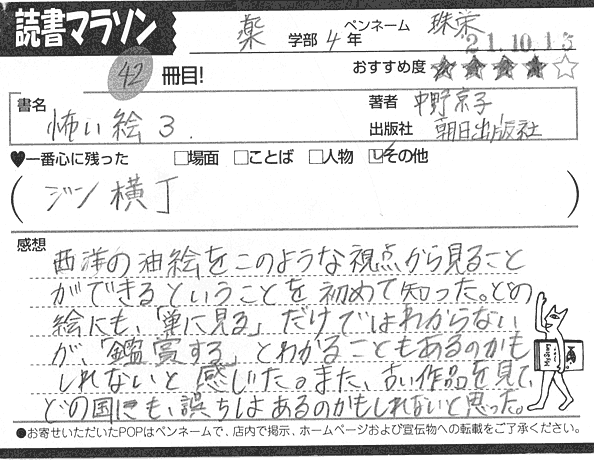 読書マラソン
薬 学部 4 年 ペンネーム 珠栄
21.10.15
42 冊目! おすすめ度 ★★★★☆
書名 怖い絵 3. 著者 中野京子
出版社 朝日出版社
♥一番心に残った □場面 □ことば □人物 ☑その他
(ジン横丁)
感想
西洋の油絵をこのような視点から見ること
ができるということを初めて知った。どの
絵にも、「単に見る」だけではわからない
が、「鑑賞する」とわかることもあるのかも
しれないと感じた。また、古い作品を見て、
どの国にも、誤ちはあるのかもしれないと思った。
●お寄せいただいたPOPはペンネームで、店内で掲示、ホームページおよび宣伝物への転載をご了承ください。